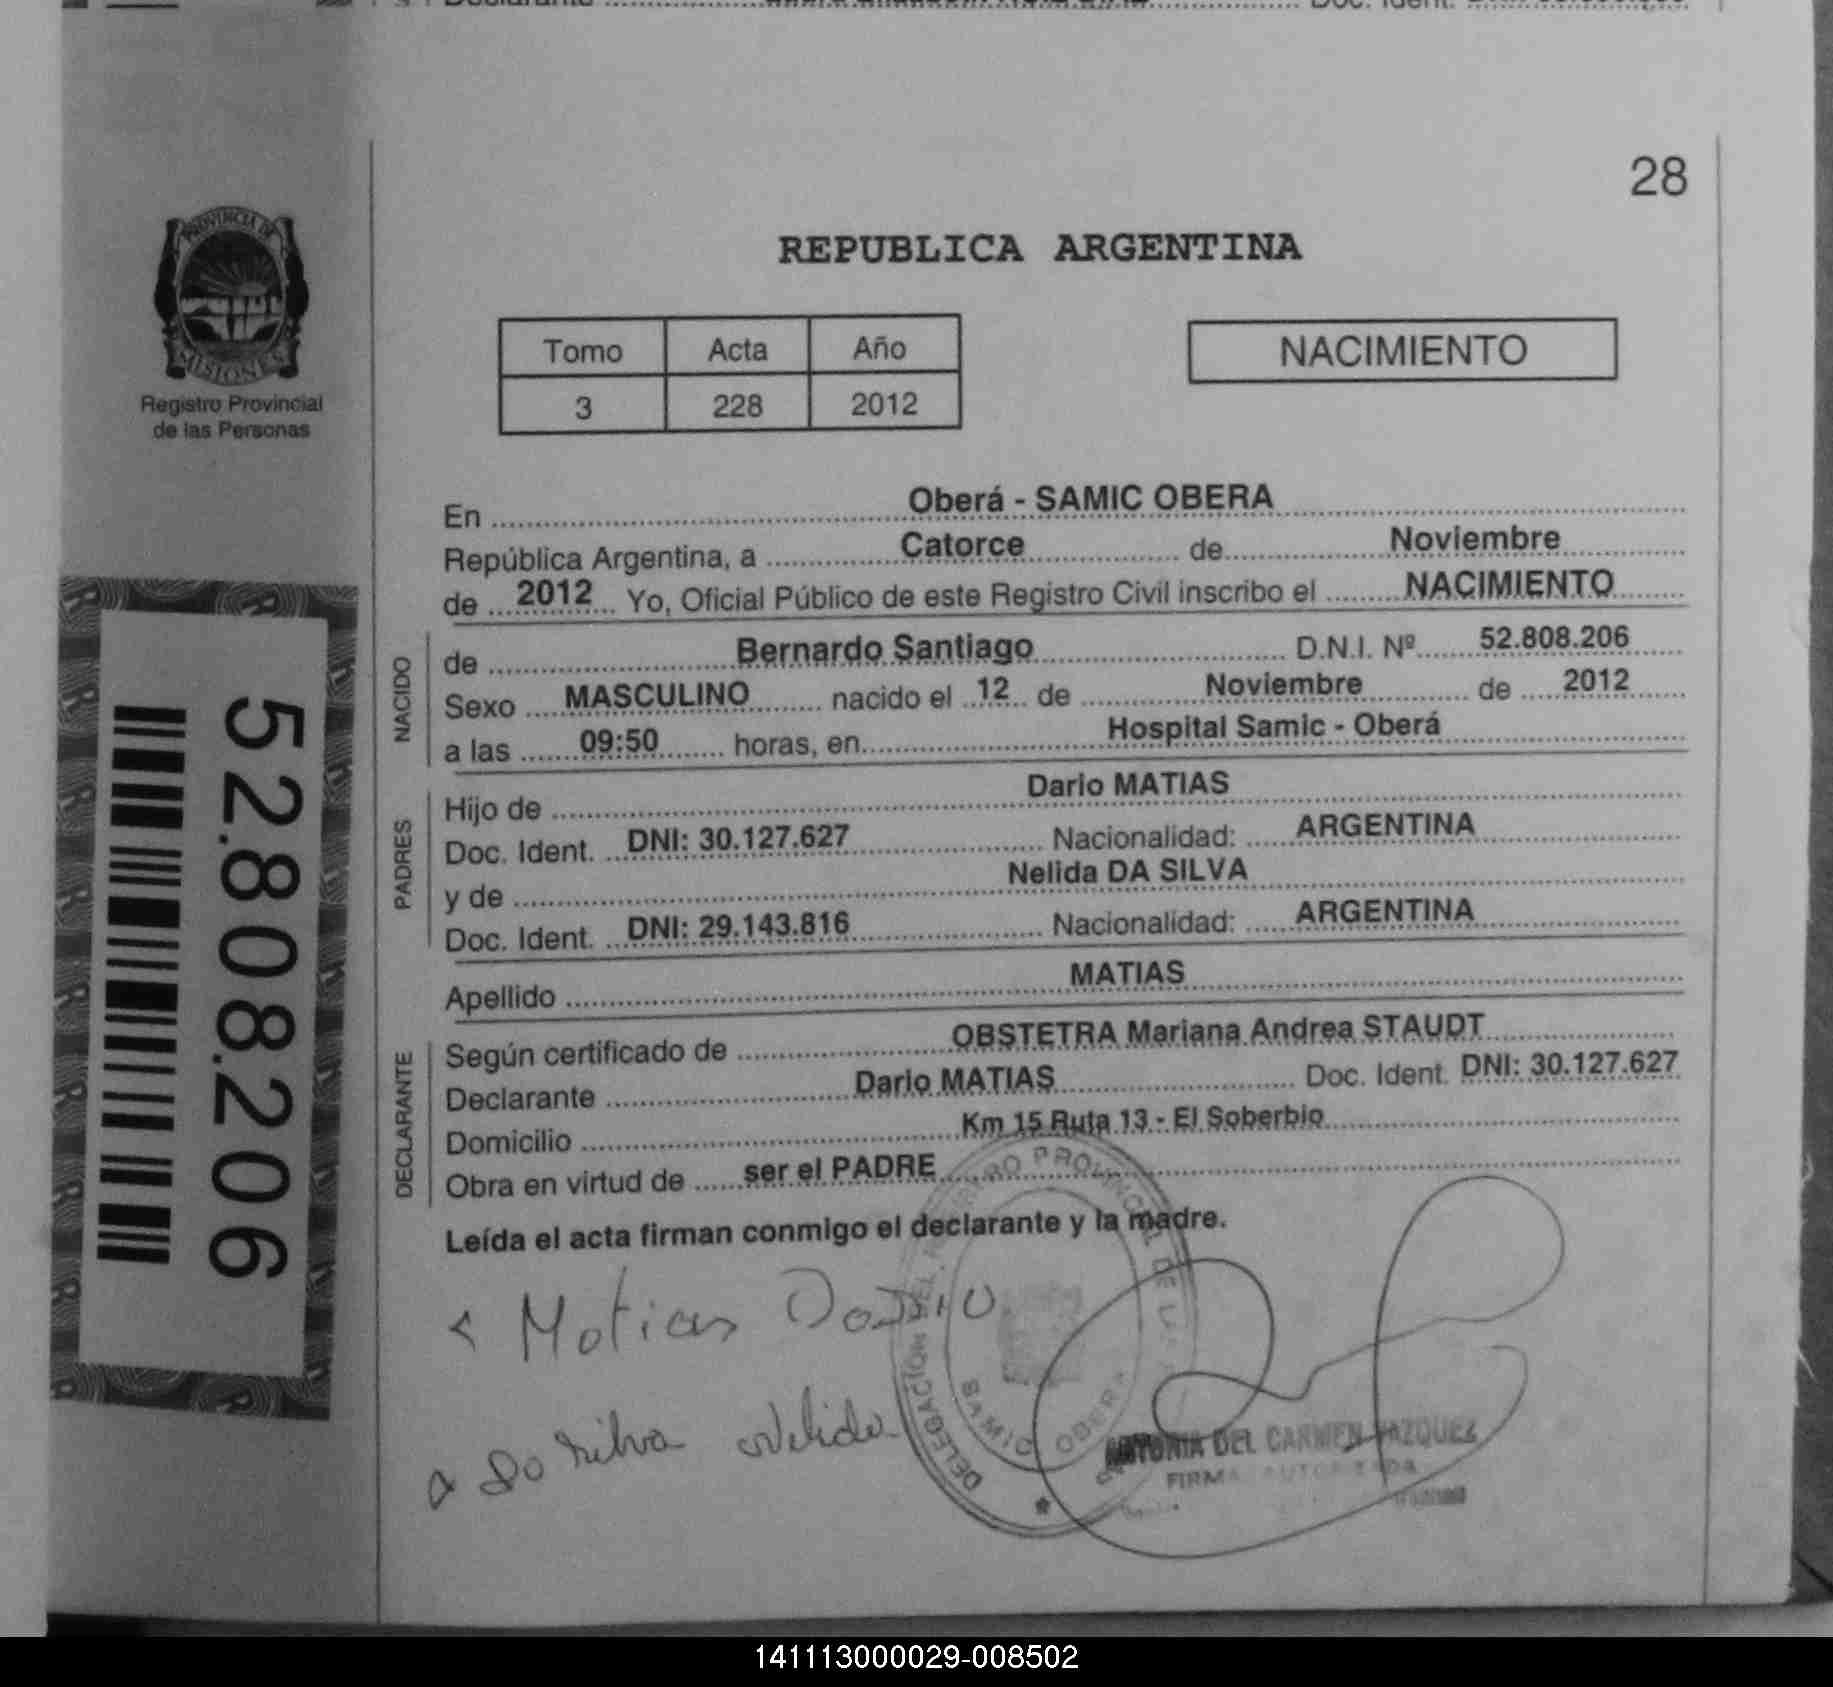 28
PROVINCIA DE
MISIONES
Registro Provincial
de las Personas
REPUBLICA ARGENTINA
Tomo Acta Año
3 228 2012
NACIMIENTO
En Oberá - SAMIC OBERA
República Argentina, a Catorce de Noviembre
de 2012 Yo, Oficial Público de este Registro Civil inscribo el NACIMIENTO
NACIDO
de Bernardo Santiago D.N.I. Nº 52.808.206
Sexo MASCULINO nacido el 12 de Noviembre de 2012
a las 09:50 horas, en Hospital Samic - Oberá
PADRES
Hijo de Dario MATIAS
Doc. Ident. DNI: 30.127.627 Nacionalidad: ARGENTINA
y de Nelida DA SILVA
Doc. Ident. DNI: 29.143.816 Nacionalidad: ARGENTINA
Apellido MATIAS
DECLARANTE
Según certificado de OBSTETRA Mariana Andrea STAUDT
Declarante Dario MATIAS Doc. Ident. DNI: 30.127.627
Domicilio Km 15 Ruta 13 - El Soberbio
Obra en virtud de ser el PADRE
Leída el acta firman conmigo el declarante y la madre.
Matias Dario
Da silva Nelida
DELEGACION DEL REGISTRO PROVINCIAL DE
SAMIC OBERA
ANTONIA DEL CARMEN VAZQUEZ
FIRMA AUTORIZADA
52.808.206
141113000029-008502